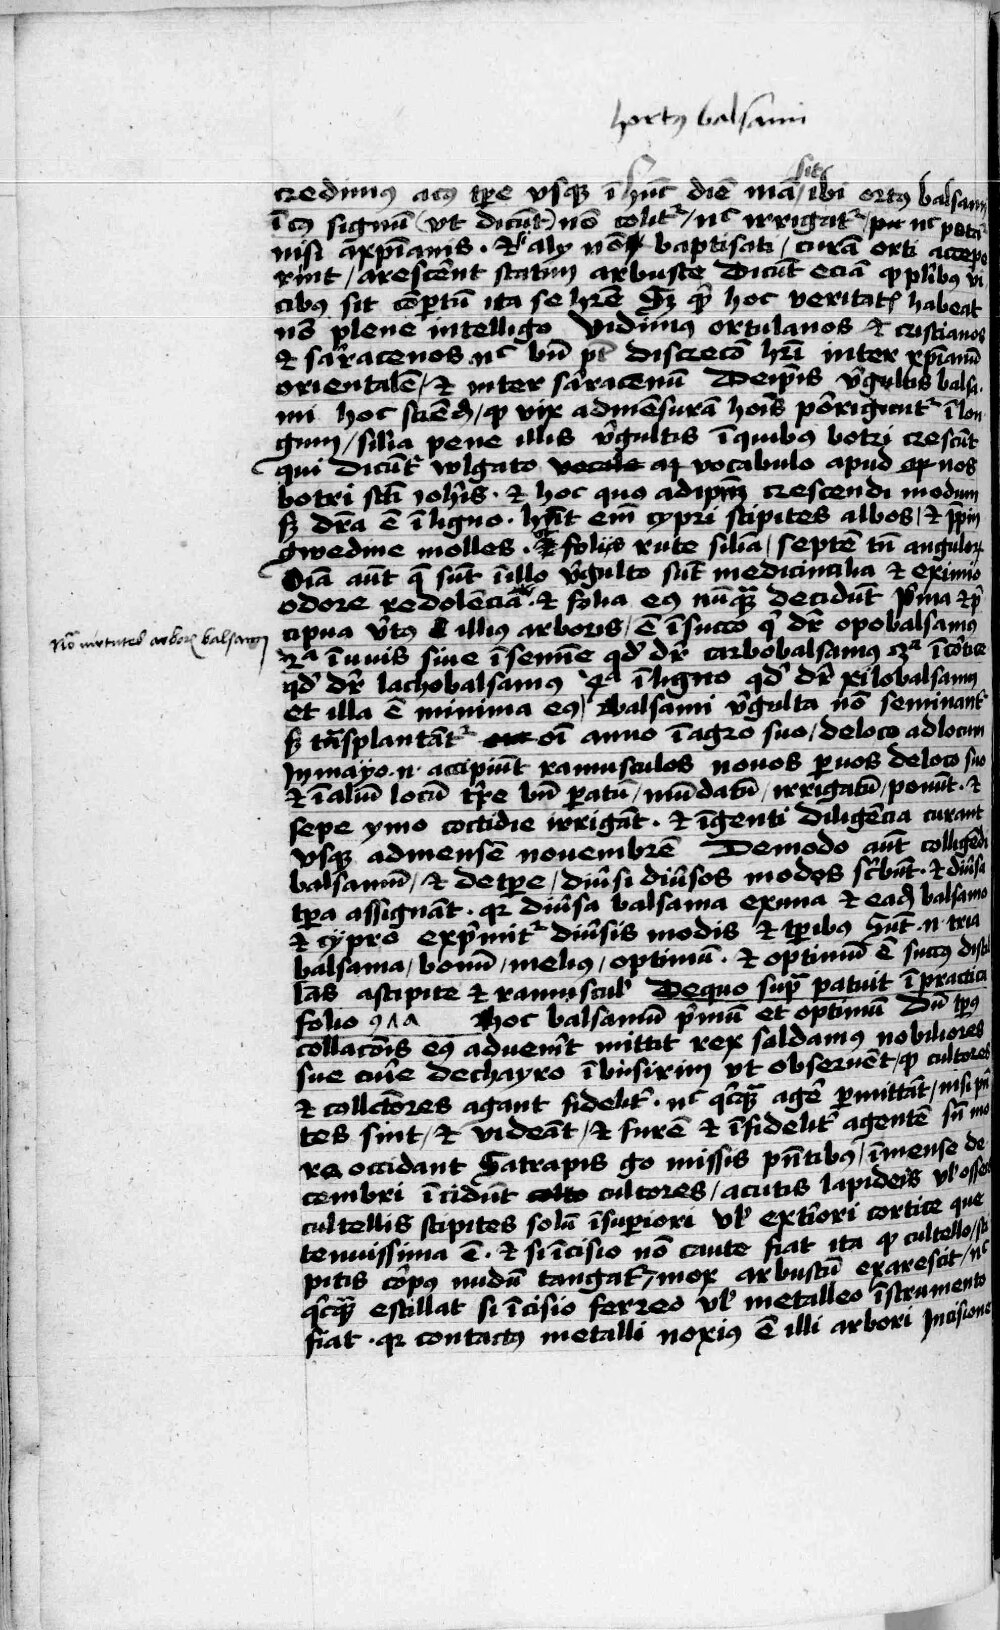 hortꝰ balsami
sit
credimꝰ aᷓcꝰ tꝑe vsqꝫ ī hūc diē mā ibi ortꝰ balsami
ī cꝰ signū (vt dicūt) nō colit᷑ / nc̄ irrigat᷑ / nc̄ putat᷑
nisi a xp̄ianis · Et si alij nō baptisati / curā orti accepe
rint / arescūt statim arbuste Dicūt eciā ꝙ plībus vi
cibꝰ sit cōpertū ita se hr̄e Sꝫ qͥd hoc veritatꝭ habeat
nō plene intelligo Vidimꝰ ortulanos et cristianos
et sarracenos nc̄ bn̄ pt̄ discrecō hr̄i inter xp̄ianū
orientalē / et inter sarracenū De ip̄is vͥgultis balsa
mi hoc sciēdū / ꝙ vix ad mēsurā hoīs porrigūt᷑ ī lon
gum / silia pene illis vͥgultis ī quibꝰ botri crescūt
qui dicūt᷑ wlgato vocabulo apud nos
botri scī Johīs · et hoc quo ad ip̄m crescendi modum
sꝫ dr̄a ē ī ligno · hn̄t em̄ cypri stipites albos / et pīn
gwedine molles · folijs rute silia / septē tn̄ angulorꝝ
Oīa aūt q̄ sūt ī illo vͥgulto sūt medicinalia et eximio
odore redolēcia · et folia eꝰ nūqꝫ decidūt pͥma et pͥ
cipua vͥtꝰ illius arboris / ē ī succo qͥ dr̄ opobalsamus
Nō virtutes arboris balsami
2ᵃ ī uuis siue ī semīe qd̓ dr̄ carbobalsamus 3ᵃ ī cortice
qd̓ dr̄ lachobalsamus 4ᵃ ī ligno qd̓ dr̄ xilobalsamus
et illa ē minima eꝰ / Balsami vͥgulta nō seminant᷑
sꝫ trāsplantāt᷑ oī anno ī agro suo / de loco ad locum
In mayo · n · accipiūt ramusculos nouos ꝑuos de loco suo
et ī aliū locū tr̄e bn̄ ꝑatū / mūdatū / irrigatū / ponūt · et
sepe ymo cottidie irrigāt · et īgenti diligēcia curant
vsqꝫ ad mensē nouembrē De modo aūt colligēdi
balsamū / et de tꝑe / diūsi diūsos modos scͥbūt · et diūsa
tꝑa assignāt · qꝛ diūsa balsama ex vna et eadē balsamo
et cypro expͥmit᷑ diūsis modis et tꝑibus Sūt · n · tria
balsama / bonū / meliꝰ / optimū · et optimū ē succꝰ distil
lās a stipite et ramusculꝭ De quo supͣ patuit ī practica
folio 911 Hoc balsamū pͥmū et optimū Dū tp̄us
collacōis eꝰ adueīt mittit rex saldanus nobiliores
sue curie de chayro ī busirim vt obseruēt / ꝙ cultores
et collectores agant fidelit᷑ · nc̄ qͥcqͣ agē ꝑmittāt / nisi pn̄
tes sint / et videāt / et furē et īfidelit᷑ agentē sn̄ mo
re occidant Satrapis go missis pn̄tibus / ī mense de
cembri īcidūt cultores / acutis lapideis vꝉ osseis
cultellis stipites solū ī superiori vꝉ exteriori cortice que
tenuissima ē · et si īcisio nō caute fiat ita ꝙ cultello / sti
pitis corpꝰ nudū tangat᷑ / mox arbustū exarescit / nc̄
qͥcqͣ estillat si īcisio ferreo vꝉ metalleo īstrumento
fiat · qꝛ contactꝰ metalli noxiꝰ ē illi arbori Incisione